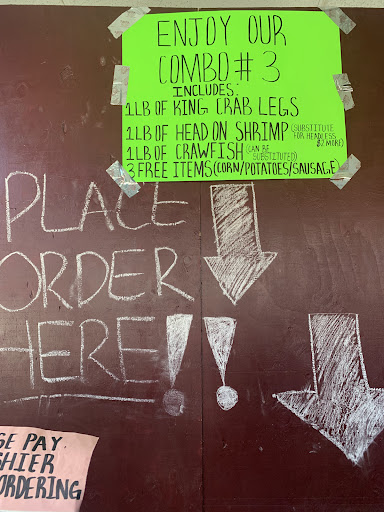 ENJOY OUR
COMBO # 3
INCLUDES:
1LB OF KING CRAB LEGS
1LB OF HEAD ON SHRIMP (SUBSTITUTE FOR HEADLESS $2 MORE)
1LB OF CRAWFISH (CAN BE SUBSTITUTED)
3 FREE ITEMS (CORN/POTATOES/SAUSAGE)
PLACE
ORDER
HERE!!
SE PAY
SHIER
ORDERING